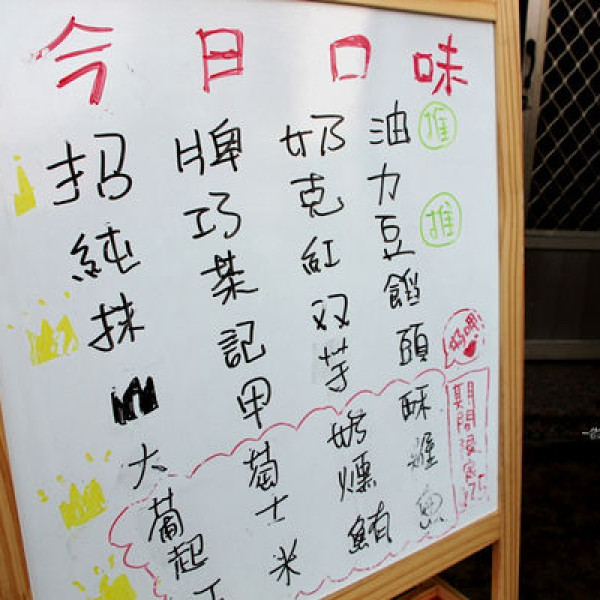 今日口味
招牌奶油 推
純巧克力 推
抹茶紅豆
記双餡
大甲芋頭
葡萄奶酥
起士燻雞
米鮪魚
好呷!
期間限定